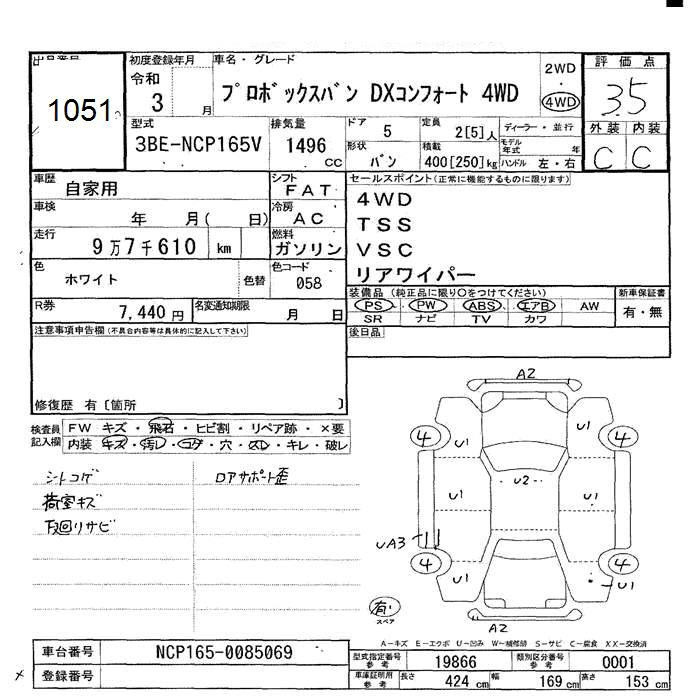 出品番号
1051
初度登録年月
令和
3 月
車名・グレード
プロボックスバン DXコンフォート 4WD
2WD
4WD
評価点
3.5
外装 内装
C C
型式
3BE-NCP165V
排気量
1496
CC
ドア
5
定員
2[5]人
形状
バン
積載
400[250]kg
ディーラー・並行
モデル年式 年
ハンドル 左・右
車歴
自家用
シフト
FAT
車検
年 月( 日)
冷房
AC
走行
9万7千610 km
燃料
ガソリン
色
ホワイト
色替
色コード
058
R券
7,440円
名変通知期限
月 日
セールスポイント(正常に機能するものに限ります)
4WD
TSS
VSC
リアワイパー
装備品(純正品に限り〇をつけてください)
PS・PW・ABS・エアB・AW
SR ナビ TV カワ
新車保証書
有・無
後日品
注意事項申告欄(不具合内容等は具体的に記入して下さい)
修復歴 有〔箇所 〕
検査員記入欄
FW キズ・飛石・ヒビ割・リペア跡・×要
内装 キズ・汚レ・コゲ・穴・スレ・キレ・破レ
シートコゲ
荷室キズ
下廻りサビ
ロアサポート歪
A2
4 U1 U1 4
U1 U2 U1
UA3
4 U1 U1 4
A2
有
スペア
A－キズ E－エクボ U－凹み W－補修跡 S－サビ C－腐食 XX－交換済
車台番号
NCP165-0085069
登録番号
型式指定番号
参考
19866
類別区分番号
参考
0001
車庫証明用
参考
長さ 424 cm 幅 169 cm 高さ 153 cm